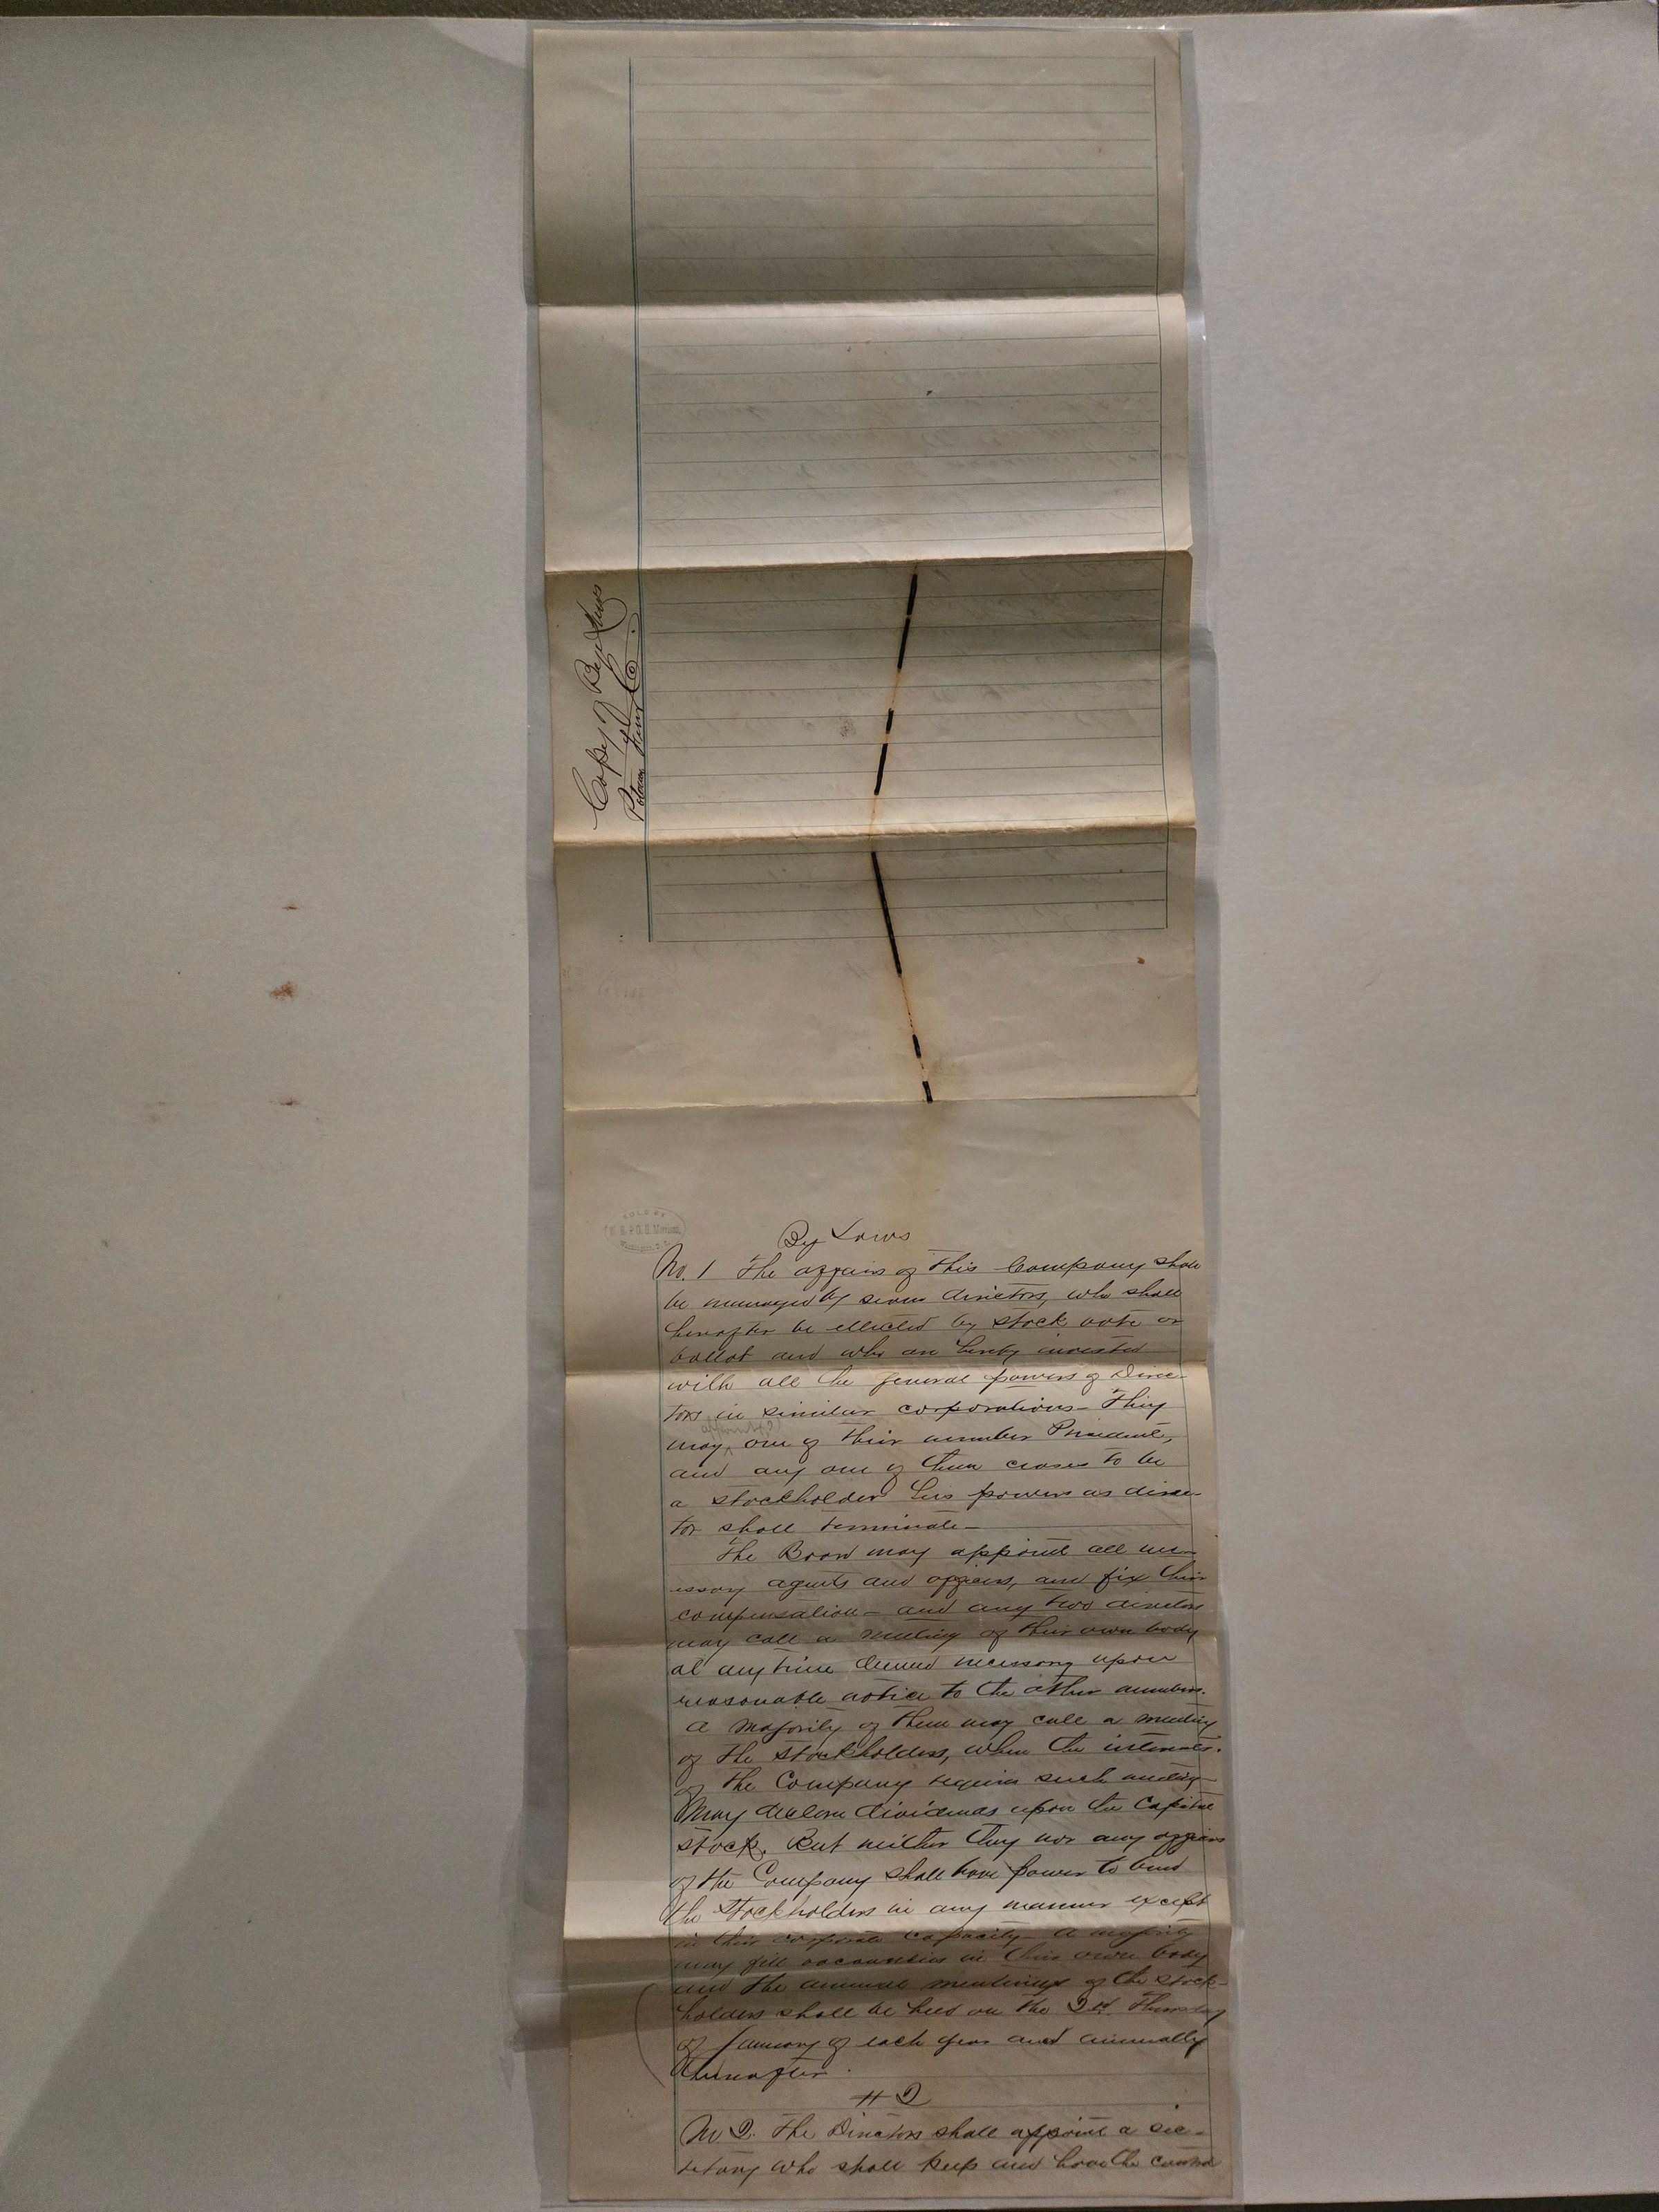 Copy of Bye Laws
Potomac Ferry Co.
SOLD BY
By Laws
No. 1 The affairs of this Company shall
be managed by seven directors, who shall
hereafter be ellected by stock vote or
ballot and who are hereby invested
with all the general powers of Direc-
tors in similar corporations - They
appoint
may, one of their number President,
and any one of them ceases to be
a stockholder his powers as direc-
tor shall terminate -
The Board may appoint all nec-
essary agents and officers, and fix their
compensation - and any two directors
may call a meeting of their own body
at any time deemed necessary upon
reasonable notice to the other members.
A majority of them may call a meeting
of the Stockholders, when the interests
of the Company require such meeting
May declare dividends upon the Capital
stock. But neither they nor any officers
of the Company shall have power to bind
the Stockholders in any manner except
in their corporate capacity - A majority
may fill vacancies in their own body
and the annual meetings of the stock-
holders shall be held on the 2nd Thursday
of January of each year and annually
thereafter.
# 2
No. 2. The Directors shall appoint a sec-
retary who shall keep and have the control